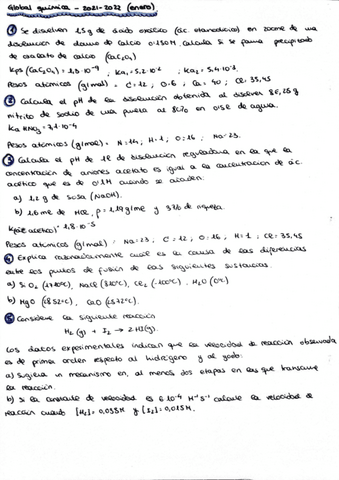 Global química - 2021-2022 (enero)
1 Se disuelven 1,5g de ácido oxálico (ác. etanodioico) en 200mL de una
disolución de cloruro de calcio 0.150M, calcula si se forma precipitado
de oxalato de calcio (CaC2O4)
Kps (CaC2O4) = 1,3·10^-9 ; Ka1 = 5,2·10^-2 ; Ka2 = 5,4·10^-5
Pesos atómicos (g/mol) = C: 12, O: 16, Ca: 40; Cl: 35,45
2 Calcula el pH de la disolución obtenida al disolver 86,25g
nitrito de sodio de una pureza al 80% en 0,5L de agua.
Ka HNO2 = 7,1·10^-4
Pesos atómicos (g/mol) = N: 14, H: 1, O: 16, Na: 23.
3 Calcula el pH de 1L de disolución reguladora en la que la
concentración de aniones acetato es igual a la concentración de ác.
acético que es de 0.1M cuando se añaden:
a) 1,2g de sosa (NaOH).
b) 1,6mL de HCl, ρ = 1,19g/mL y 37% de riqueza.
acético) = 1,8·10^-5
Pesos atómicos (g/mol): Na: 23, C: 12, O: 16, H: 1, Cl: 35,45
4 Explica razonadamente cuál es la causa de las diferencias
entre los puntos de fusión de las siguientes sustancias.
a) SiO2 (1710ºC), NaCl (810ºC), Cl2 (-100ºC), H2O (0ºC)
b) MgO (2852ºC), CaO (2572ºC).
5 Considere la siguiente reacción
H2 (g) + I2 → 2HI(g).
Los datos experimentales indican que la velocidad de reacción observada
es de primer orden respecto al hidrógeno y al yodo:
a) Sugiera un mecanismo en, al menos dos etapas en las que transcurre
la reacción.
b) Si la constante de velocidad es 6·10^-4 M^-1 s^-1 calcule la velocidad de
reacción cuando [H2] = 0,05M y [I2] = 0,015M.